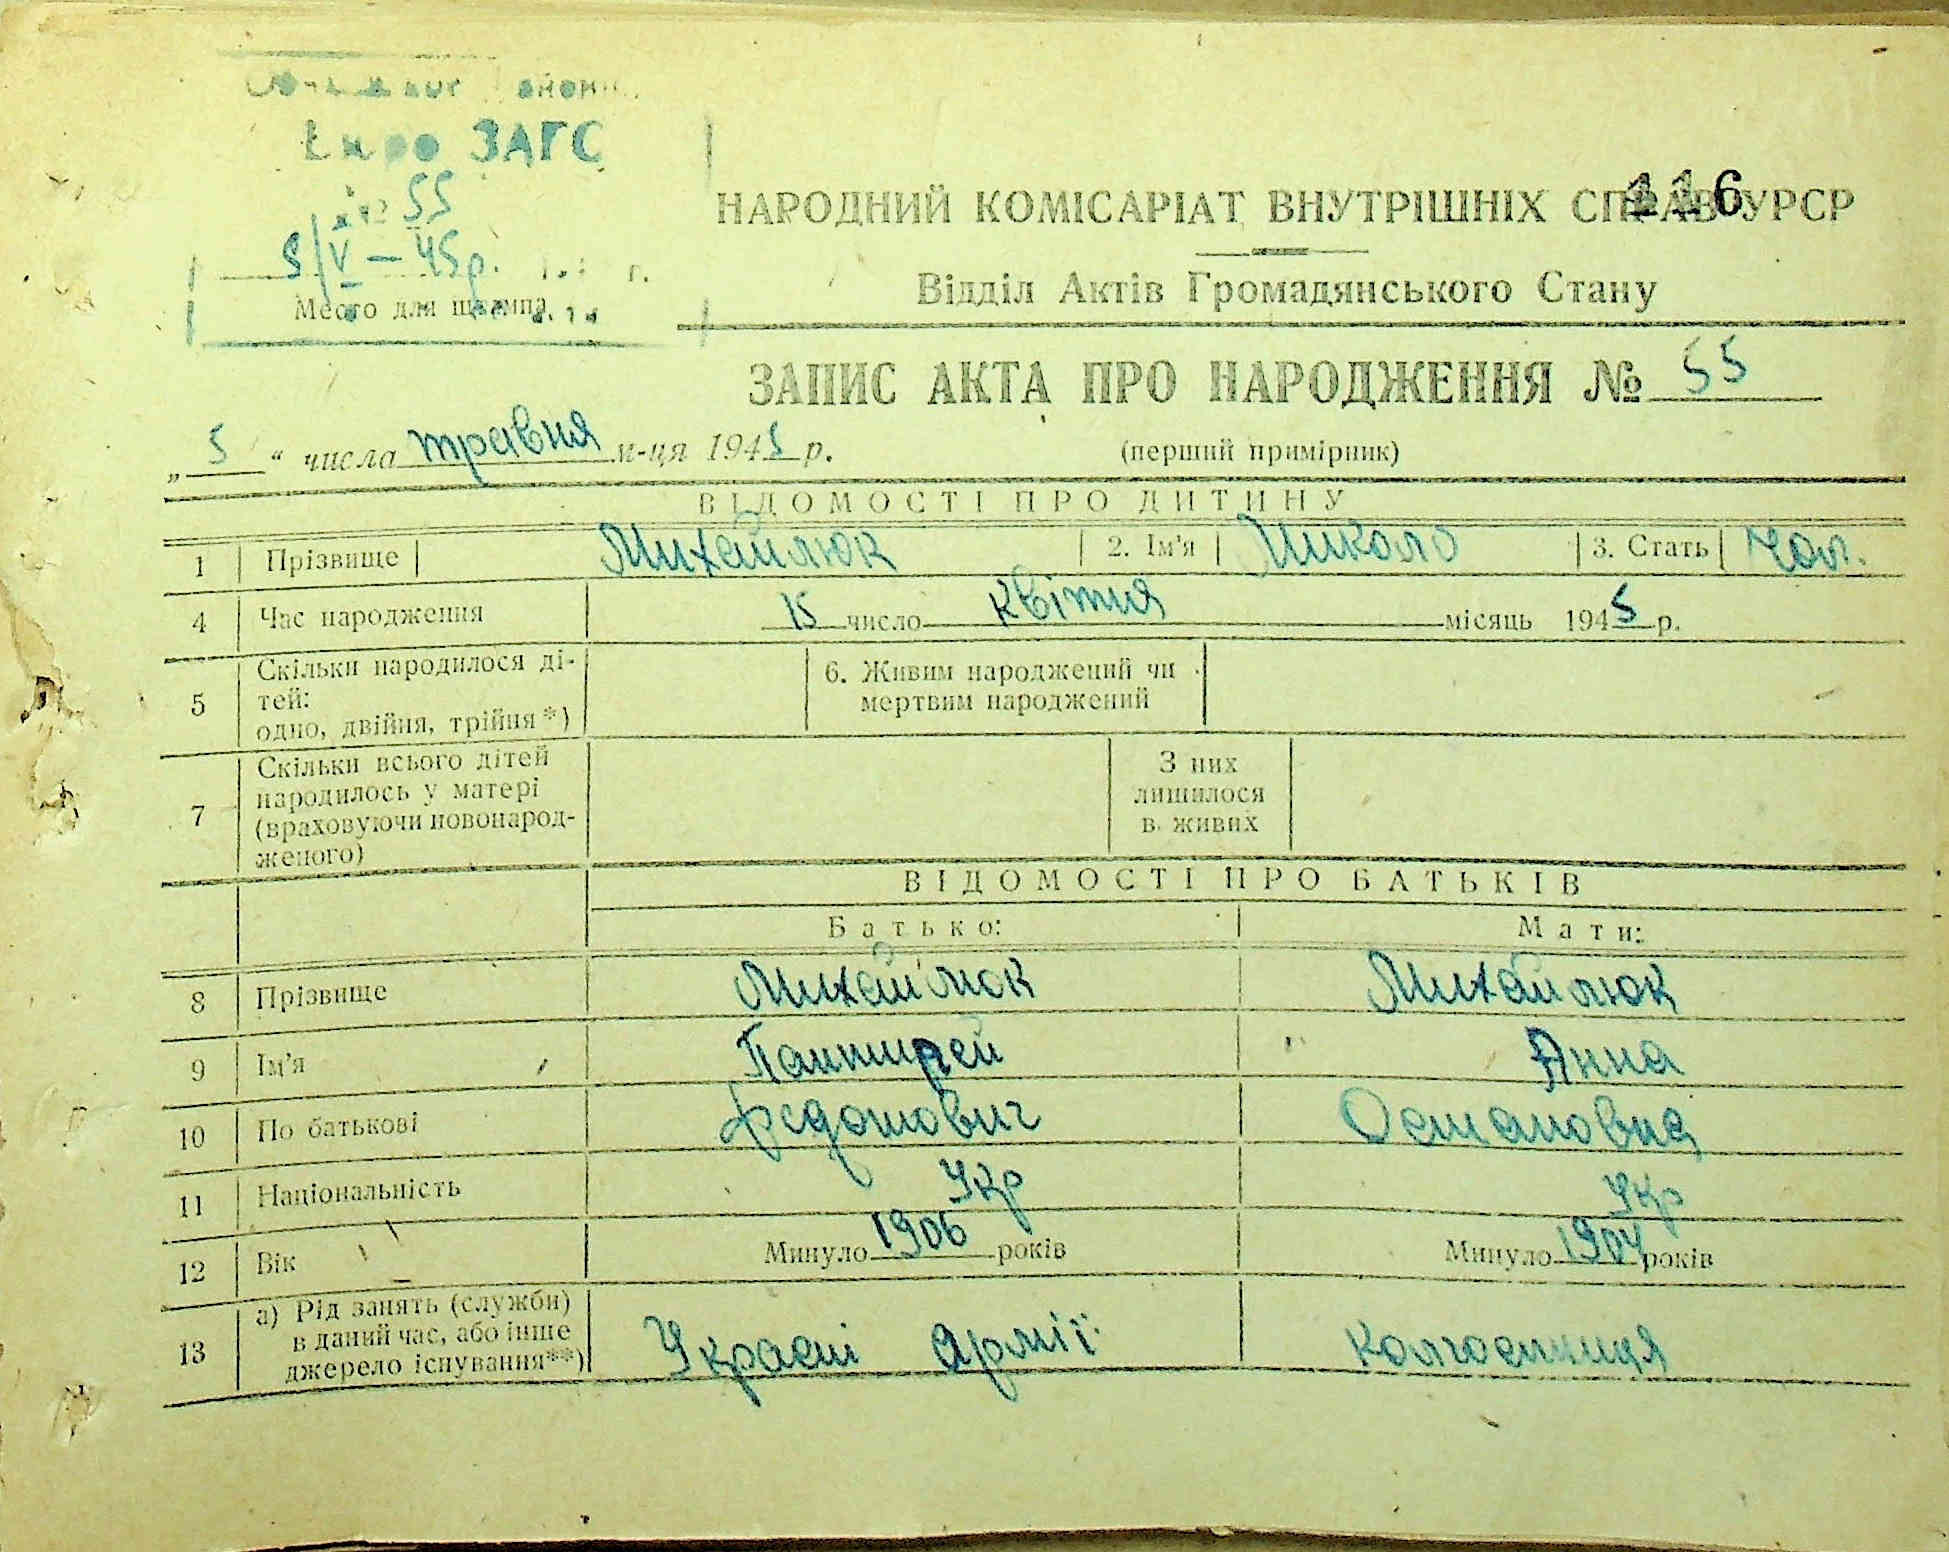 Бюро ЗАГС
№ 55
5/V — 45р. г.
Место для штампа
116
НАРОДНИЙ КОМІСАРІАТ ВНУТРІШНІХ СПРАВ УРСР
Відділ Актів Громадянського Стану
ЗАПИС АКТА ПРО НАРОДЖЕННЯ № 55
„ 5 “ числа травня м-ця 1945 р. (перший примірник)
ВІДОМОСТІ ПРО ДИТИНУ
1 Прізвище Михайлюк 2. Ім'я Микола 3. Стать чол.
4 Час народження 15 число квітня місяць 1945 р.
5 Скільки народилося ді-
тей:
одно, двійня, трійня*)
6. Живим народжений чи
мертвим народжений
7 Скільки всього дітей
народилось у матері
(враховуючи новонарод-
женого)
З них
лишилося
в живих
ВІДОМОСТІ ПРО БАТЬКІВ
Батько: Мати:
8 Прізвище Михайлюк Михайлюк
9 Ім'я Пантилей Анна
10 По батькові Федотович Остаповна
11 Національність Укр Укр
12 Вік Минуло 1906 років Минуло 1904 років
13 а) Рід занять (служби)
в даний час, або інше
джерело існування**)
У красні армії колгоспниця